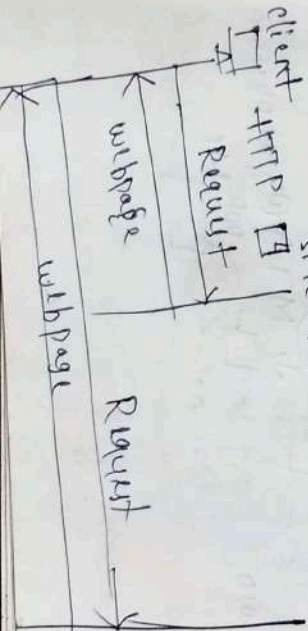 client
HTTP
Request
webpage
Request
webpage